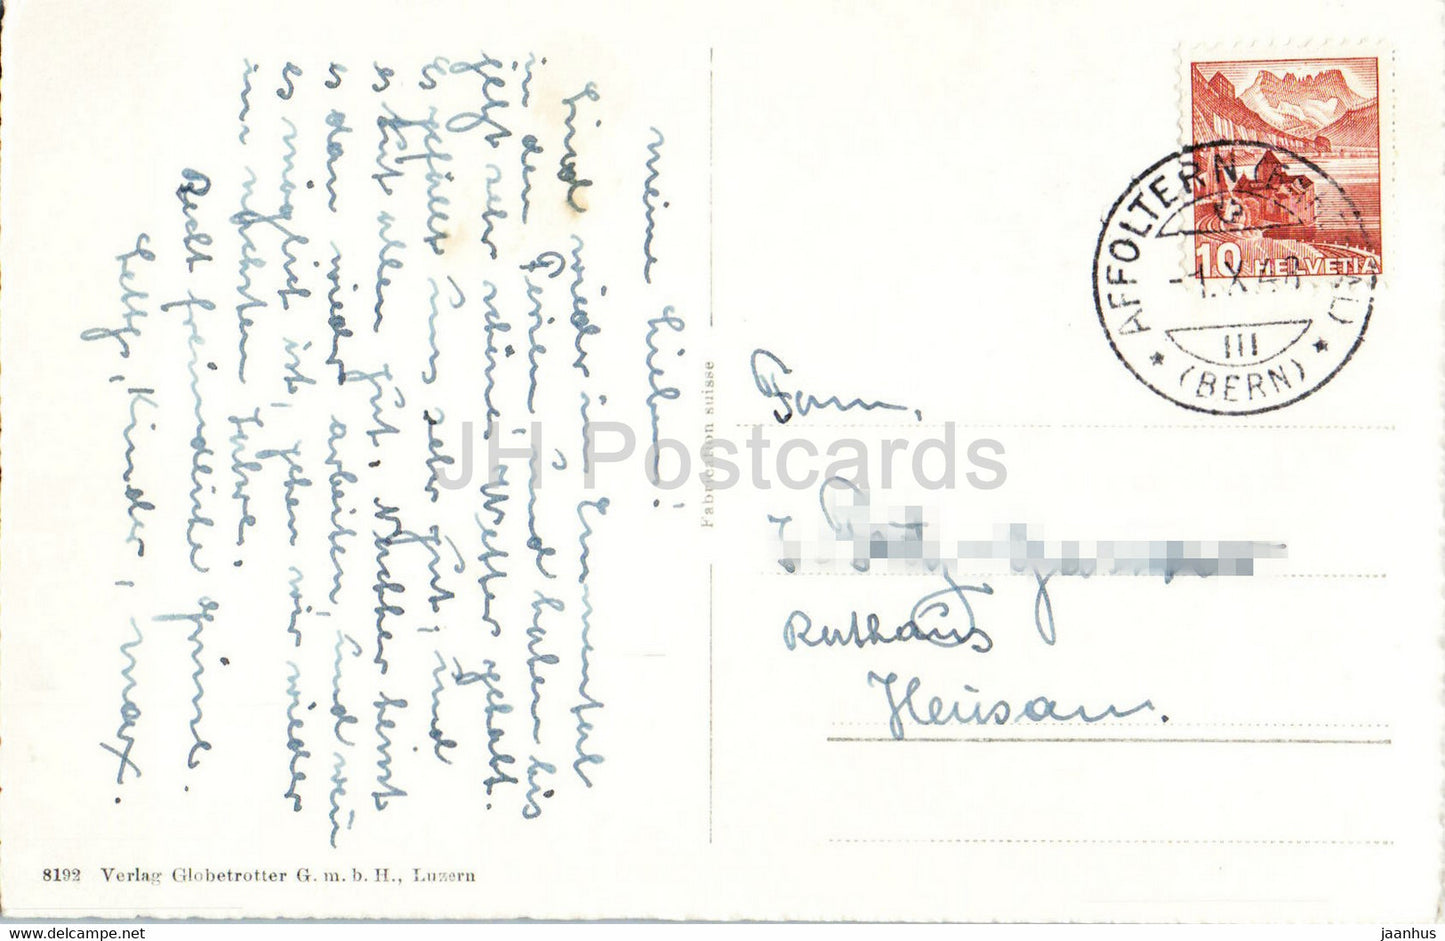 Meine Lieben!
Sind wieder im Emmental
in den Ferien, und haben bis
jetzt sehr schönes Wetter gehabt.
Es gefällt uns sehr gut, und
es tut allen gut. Nachher heisst
es dann wieder arbeiten, und wenn
es möglich ist, gehen wir wieder
im nächsten Jahre.
Recht freundliche Grüsse.
Kinder, Max.
8192 Verlag Globetrotter G. m. b. H., Luzern
Fabrication suisse
10 HELVETIA
AFFOLTERN
-1.X.48
III
(BERN)
Fam.
Rathaus
Heusam.
JH Postcards
jaanhus